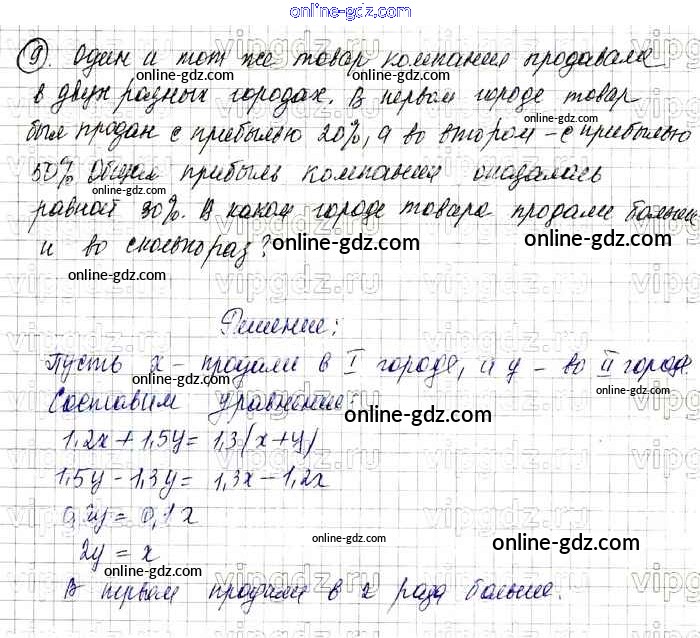 online-gdz.com
9. Один и тот же товар компания продавала
online-gdz.com online-gdz.com
в двух разных городах. В первом городе товар
online-gdz.com
был продан с прибылью 20%, а во втором - с прибылью
50%. Общая прибыль компании оказалась
online-gdz.com
равной 30%. В каком городе товара продали больше
и во сколько раз?
online-gdz.com online-gdz.com
online-gdz.com
Решение:
Пусть x - продали в I городе, а y - во II городе
online-gdz.com online-gdz.com
Составим уравнение:
online-gdz.com
1,2x + 1,5y = 1,3(x+y)
1,5y - 1,3y = 1,3x - 1,2x
0,2y = 0,1x
2y = x
online-gdz.com online-gdz.com
В первом продали в 2 раза больше.